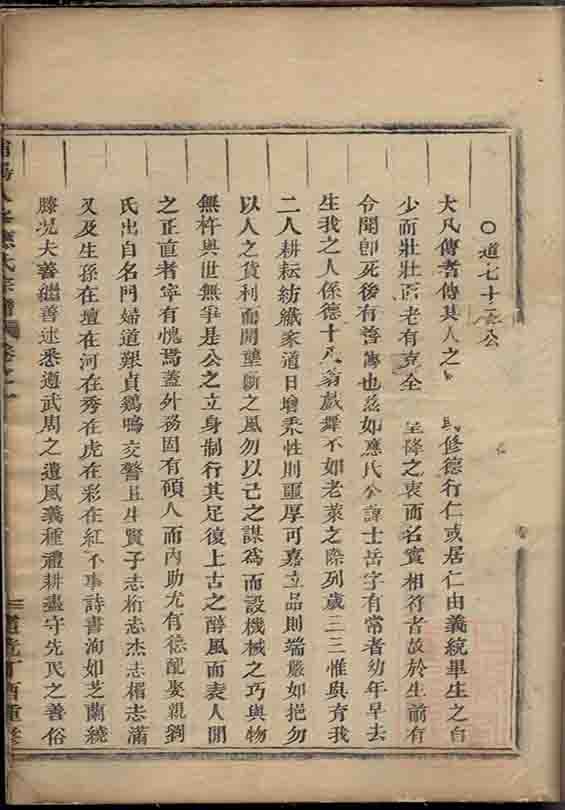 ○道七十二公
大凡傳者傳其人之 修德行仁或居仁由義統畢生之自
少而壯壯而老有克全 降之衷而名實相符者故於生前有
令聞即死後有善傳也茲如應氏公諱士岳字有常者幼年早去
生我之人係德十八翁戲舞不如老萊之際列歲三三惟與育我
二人耕耘紡織家道日增秉性則噩厚可嘉立品則端嚴如挹勿
以人之貨利而開壟斷之風勿以己之謀為而設機械之巧與物
無忤與世無爭是公之立身制行其足復上古之醇風而表人間
之正直者寧有愧焉蓋外務固有碩人而內助尤有德配娶親劉
氏出自名門婦道艱貞鷄鳴交警且生賢子志桁志杰志楣志滿
又及生孫在壇在河在秀在虎在彩在紅不事詩書洵如芝蘭繞
膝况夫善繼善述悉遵武周之遺風義種禮耕盡守先民之善俗
應氏宗譜 卷之
道光丁酉重修